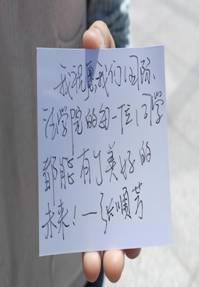 我祝愿我们国际
法学院的每一位同学
都能有美好的
未来！—张顺芳